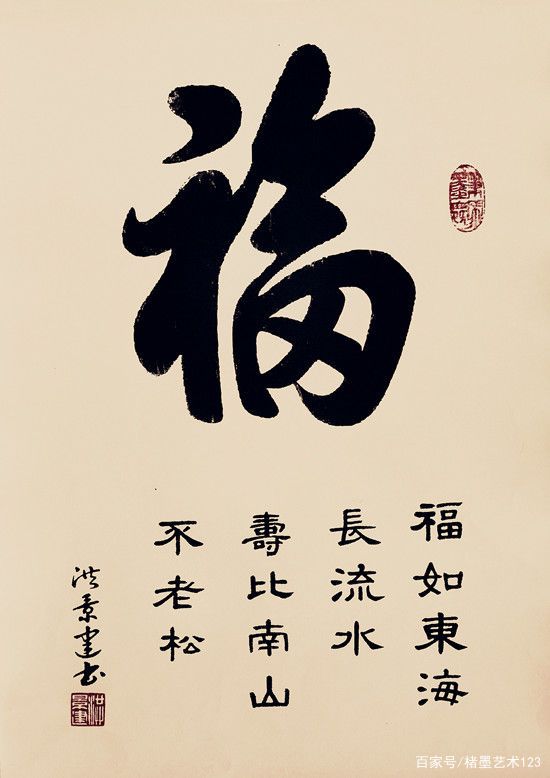 福
福如東海
長流水
壽比南山
不老松
洪景建书
百家号/楮墨艺术123